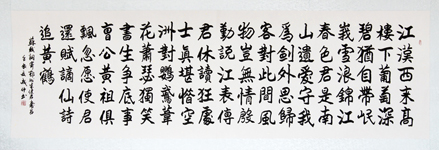 江漢西來高
樓下葡萄深
碧猶自帶岷
峨雪浪錦江
春色君是南
山遺愛守我
為劍外思歸
客對此間風
物豈無情殷
勤說江表傳
君休讀狂處
士真堪惜空
洲對鸚鵡葦
花蕭瑟獨笑
書生爭底事
曹公黃祖俱
飄忽愿使君
還賦謫仙詩
追黃鶴